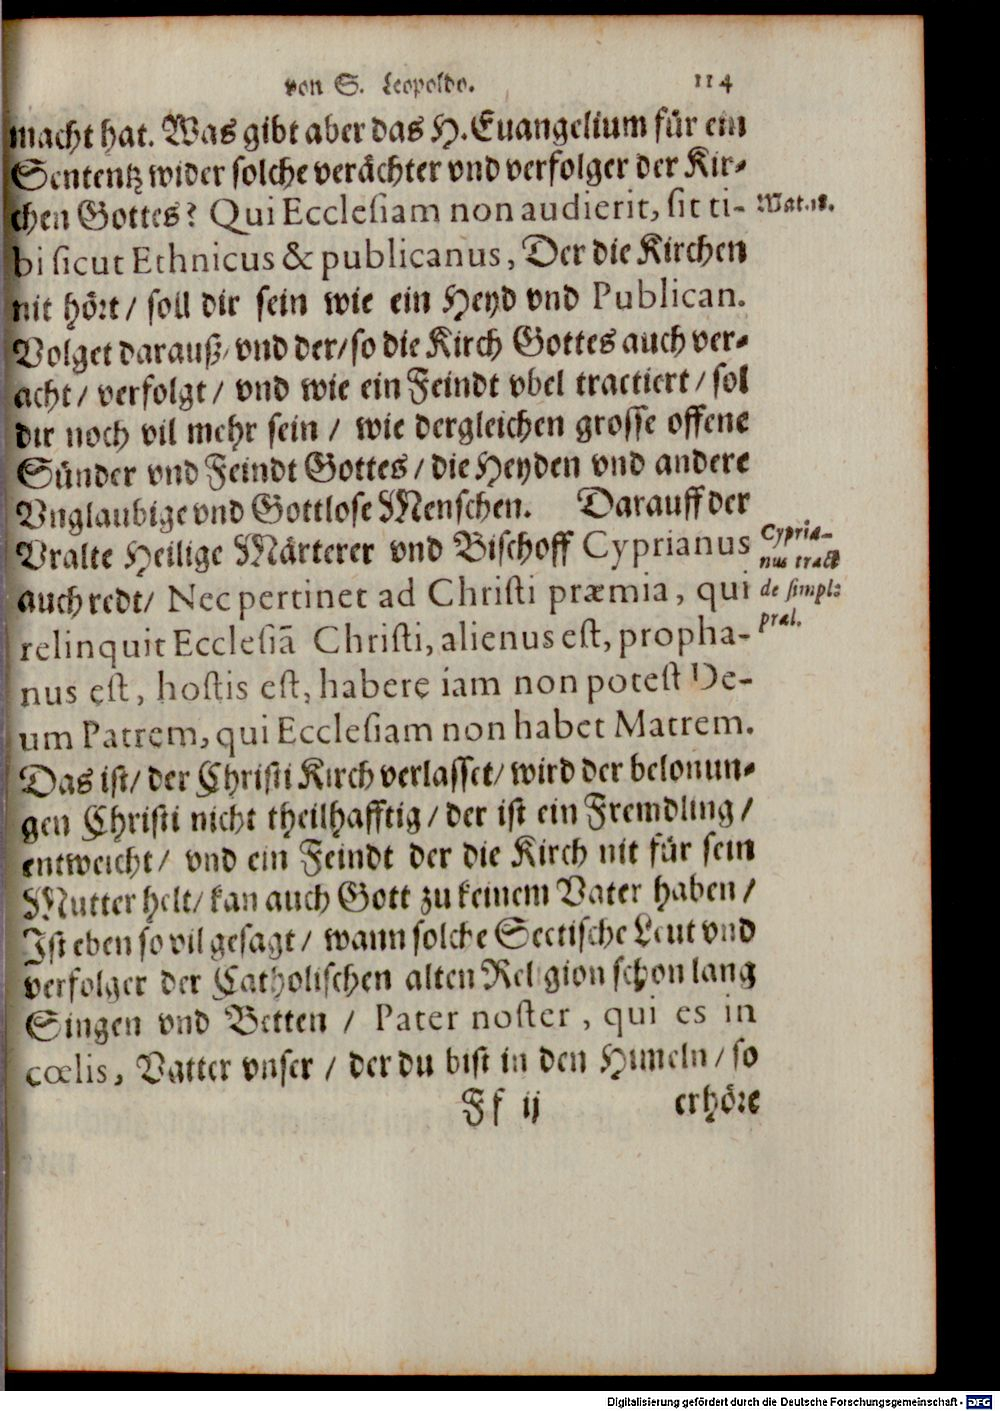 von S. Leopoldo. 114
macht hat. Was gibt aber das H. Euangelium für ein
Sententz wider solche verächter vnd verfolger der Kir-
chen Gottes? Qui Ecclesiam non audierit, sit ti-
Mat. 18.
bi sicut Ethnicus & publicanus, Der die Kirchen
nit hört / soll dir sein wie ein Heyd vnd Publican.
Volget darauß / vnd der / so die Kirch Gottes auch ver-
acht / verfolgt / vnd wie ein Feindt vbel tractiert / sol
dir noch vil mehr sein / wie dergleichen grosse offene
Sünder vnd Feindt Gottes / die Heyden vnd andere
Vnglaubige vnd Gottlose Menschen. Darauff der
Vralte Heilige Märterer vnd Bischoff Cyprianus
Cypria-
nus tract
auch redt / Nec pertinet ad Christi præmia, qui
de simpl:
præl.
relinquit Ecclesiã Christi, alienus est, propha-
nus est, hostis est, habere iam non potest De-
um Patrem, qui Ecclesiam non habet Matrem.
Das ist / der Christi Kirch verlasset / wird der belonun-
gen Christi nicht theilhafftig / der ist ein Fremdling /
entweicht / vnd ein Feindt der die Kirch nit für sein
Mutter helt / kan auch Gott zu keinem Vater haben /
Ist eben so vil gesagt / wann solche Sectische Leut vnd
verfolger der Catholischen alten Religion schon lang
Singen vnd Betten / Pater noster, qui es in
cœlis, Vatter vnser / der du bist in den Himeln / so
Ff ij erhöre
Digitalisierung gefördert durch die Deutsche Forschungsgemeinschaft - DFG